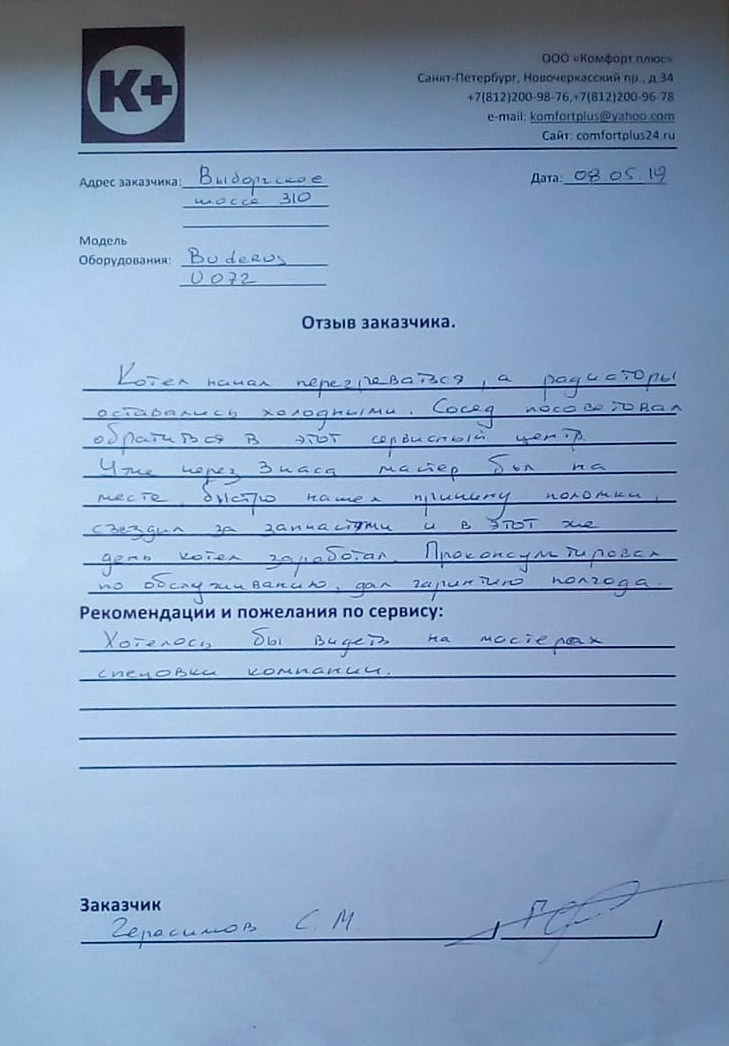 K+
ООО «Комфорт плюс»
Санкт-Петербург, Новочеркасский пр., д.34
+7(812)200-98-76,+7(812)200-96-78
e-mail: komfortplus@yahoo.com
Сайт: comfortplus24.ru
Адрес заказчика: Выборгское
шоссе 310
Дата: 08.05.19
Модель
Оборудования: Buderus
U072
Отзыв заказчика.
Котел начал перегреваться, а радиаторы
оставались холодными. Сосед посоветовал
обратиться в этот сервисный центр
Уже через 3 часа мастер был на
месте, быстро нашел причину поломки,
съездил за запчастями и в этот же
день котел заработал. Проконсультировал
по обслуживанию, дал гарантию полгода.
Рекомендации и пожелания по сервису:
Хотелось бы видеть на мастерах
спецовки компании.
Заказчик
Герасимов С.М.